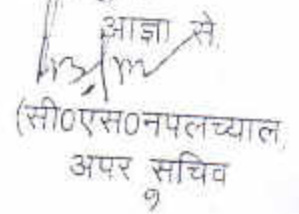 आज्ञा से,
(सी0एस0नपलच्याल,
अपर सचिव